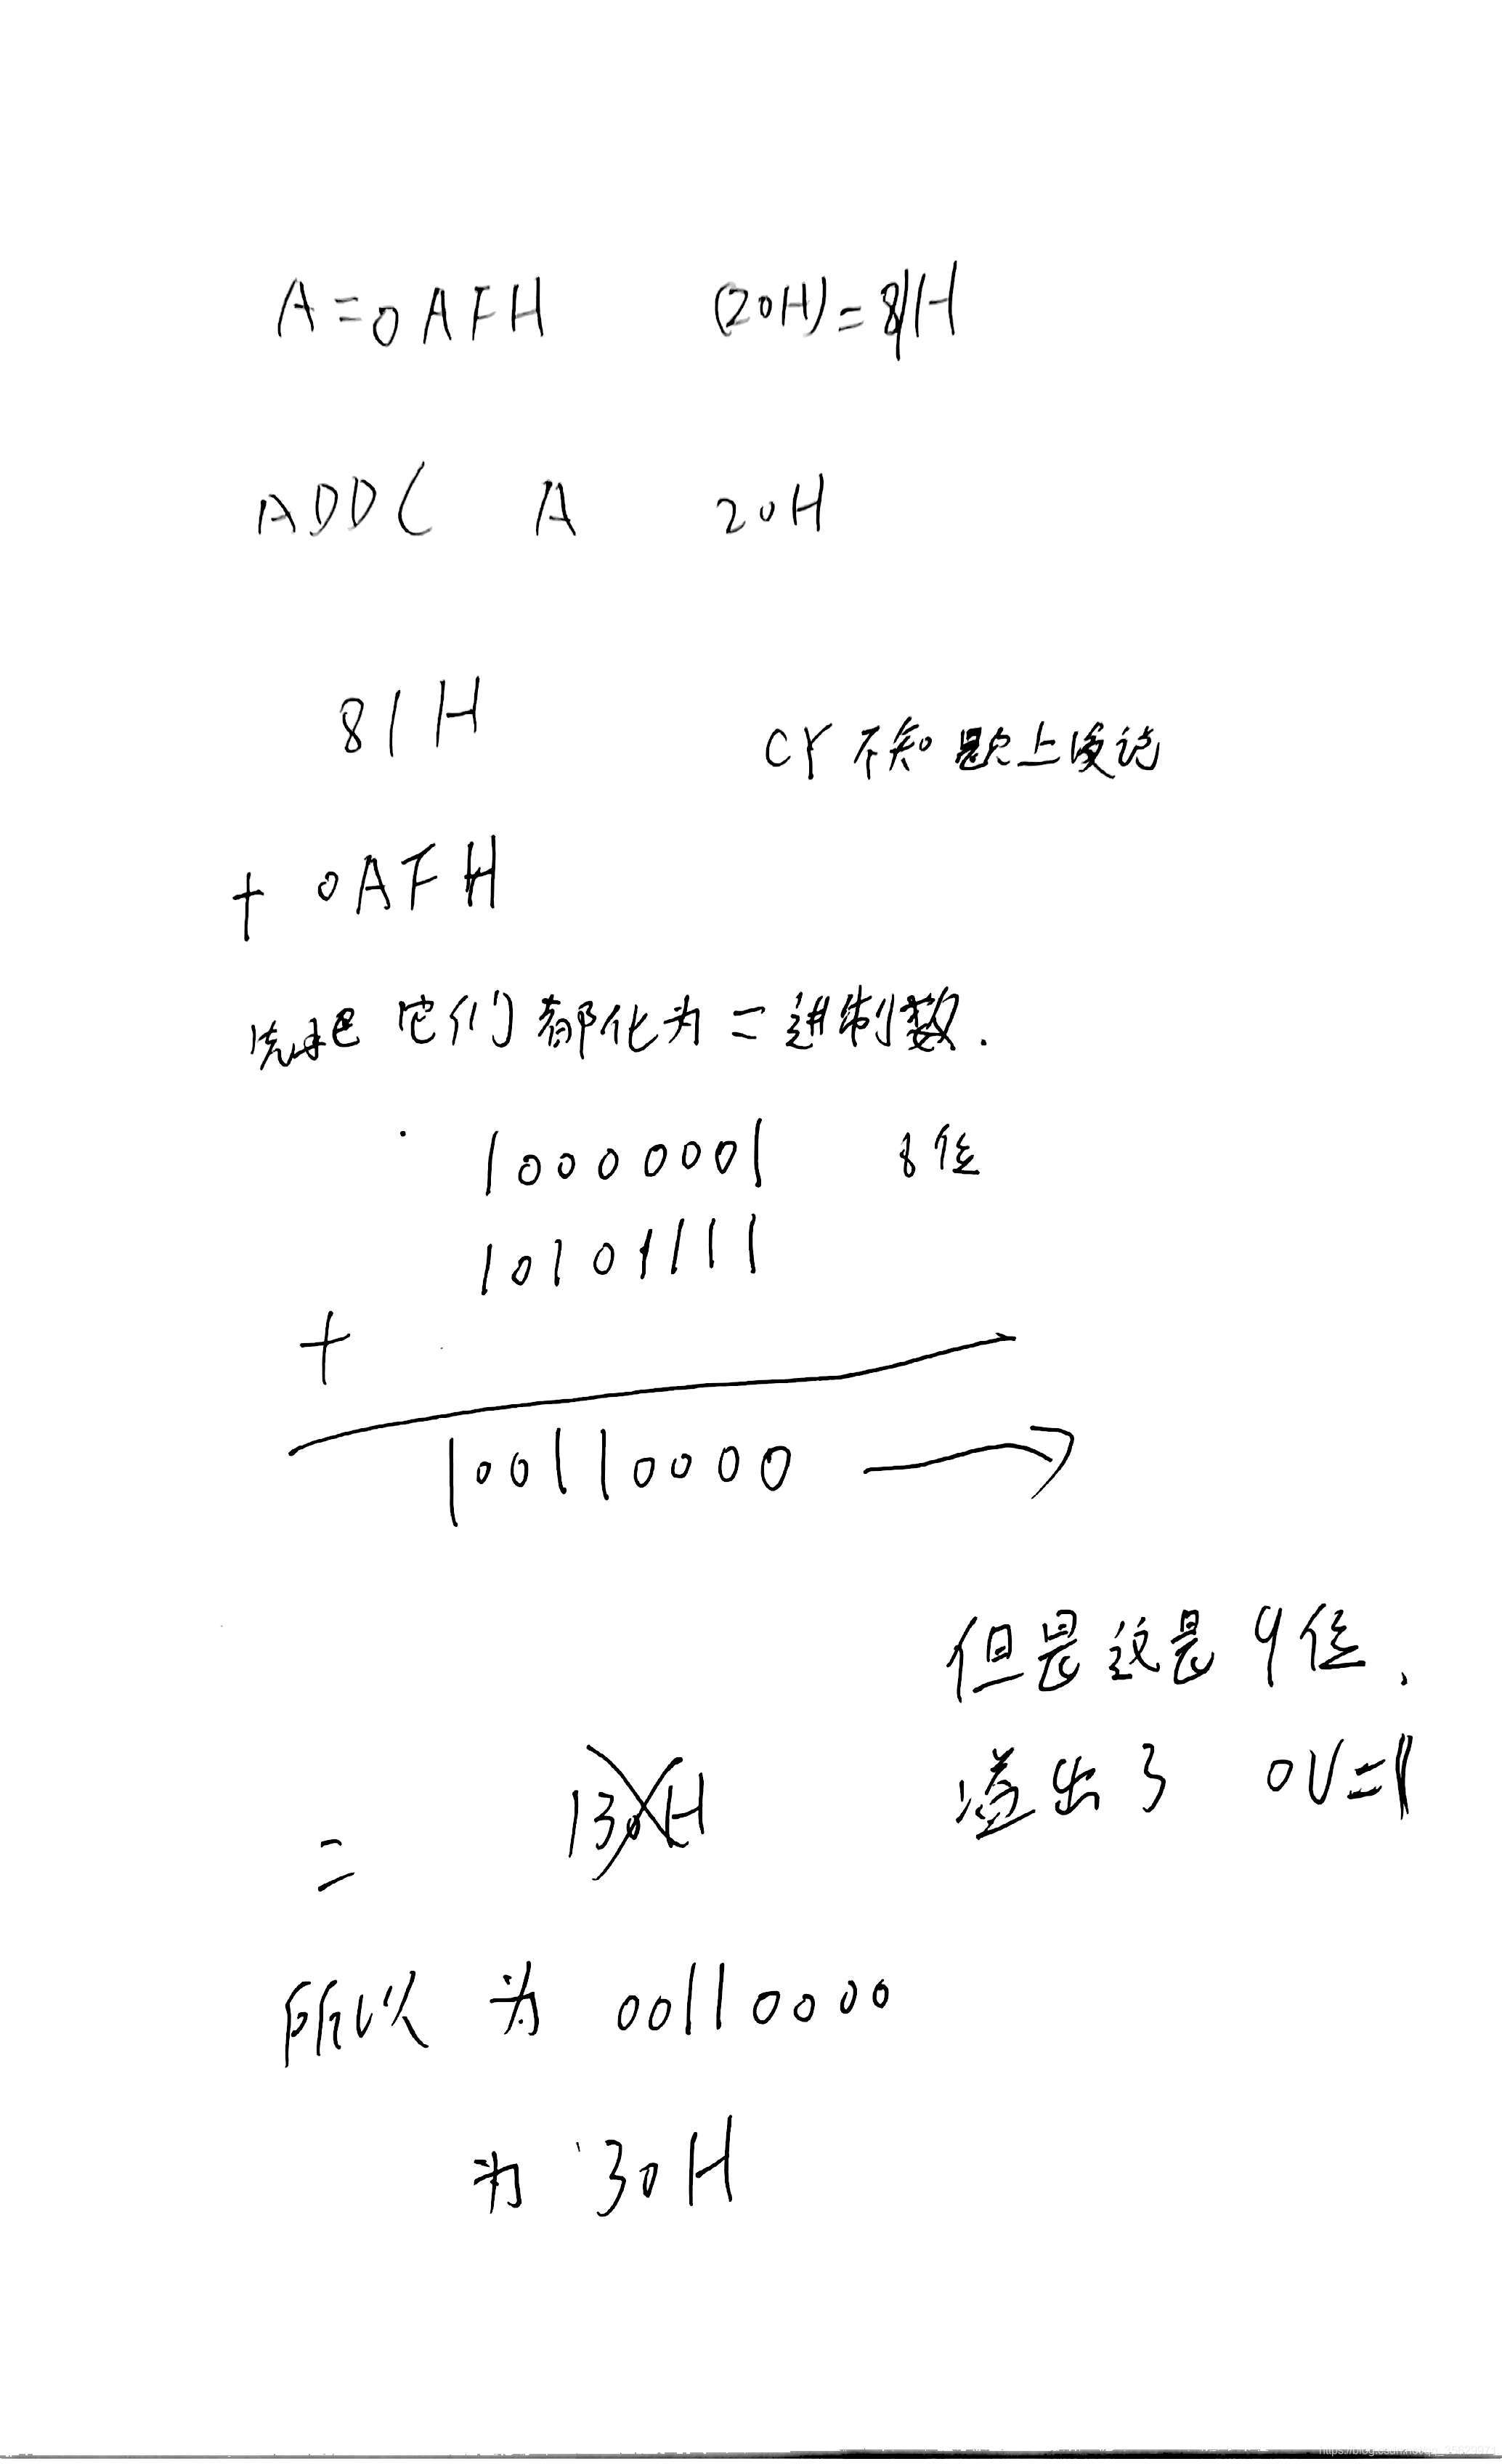 A=0AFH (20H)=81H
ADDC A 20H
81H CY不知 题上没说
+ 0AFH
先把它们都化为二进制数.
10000001 8位
10101111
+
100110000
但是这是9位,
溢出了 OV=1
= 130H
所以 为 00110000
为 30H